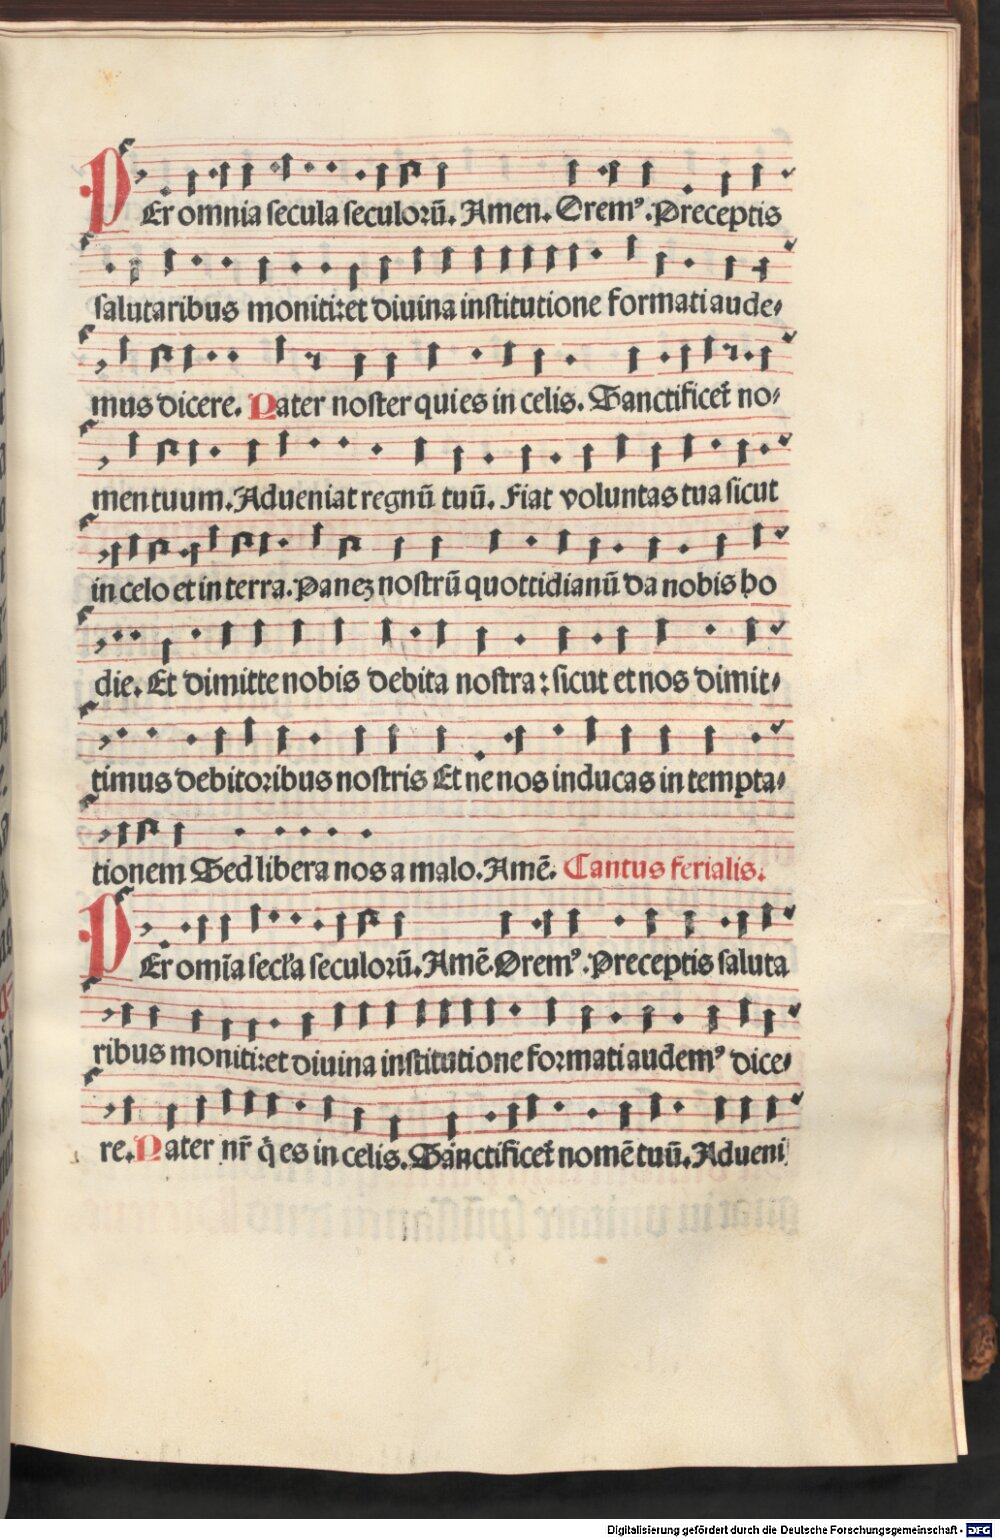 PEr omnia secula seculorū. Amen. Oremꝰ. Preceptis
salutaribus moniti: et diuina institutione formati aude⸗
mus dicere. Pater noster qui es in celis. Sanctificet᷑ no⸗
men tuum. Adueniat regnū tuū. Fiat voluntas tua sicut
in celo et in terra. Paneꝫ nostrū quottidianū da nobis ho
die. Et dimitte nobis debita nostra: sicut et nos dimit⸗
timus debitoribus nostris Et ne nos inducas in tempta⸗
tionem Sed libera nos a malo. Amē. Cantus ferialis.
PEr om̄ia secl̓a seculorū. Amē. Oremꝰ. Preceptis saluta
ribus moniti: et diuina institutione formati audemꝰ dice⸗
re. Pater nr̄ q̇ es in celis. Sanctificet᷑ nomē tuū. Adueni
Digitalisierung gefördert durch die Deutsche Forschungsgemeinschaft - DFG